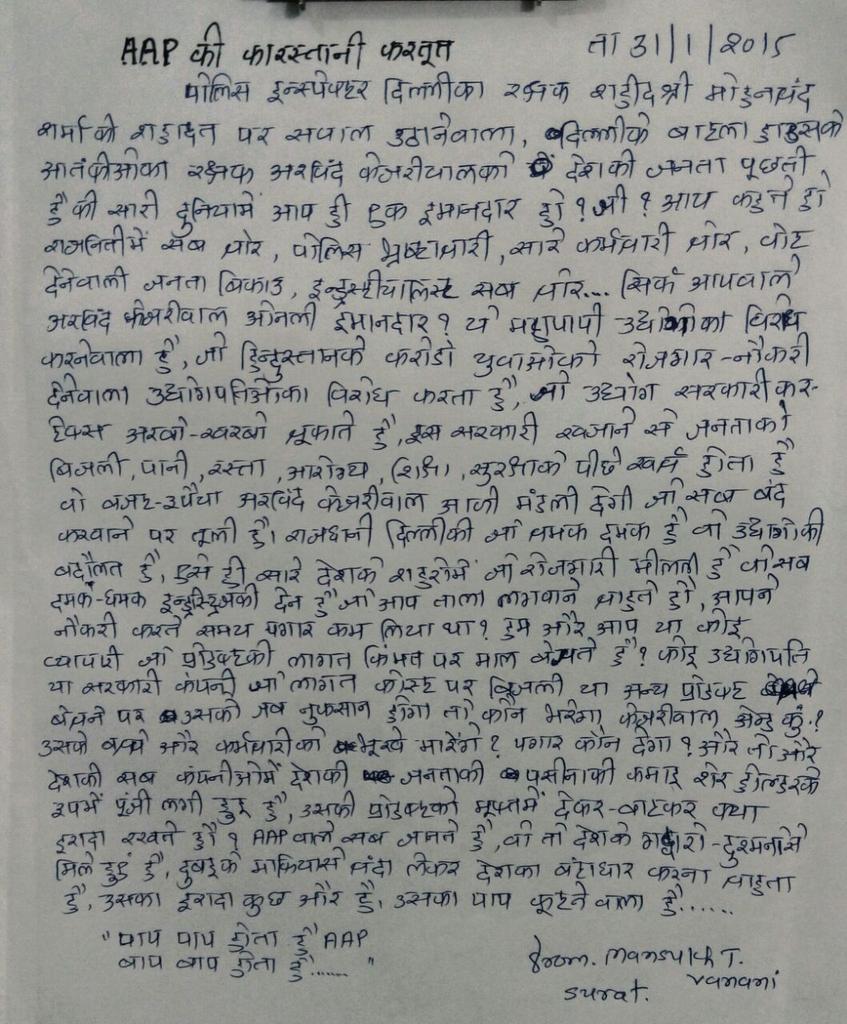 AAP की कारस्तानी करतूत ता 31/1/2015
पोलिस इन्स्पेक्टर दिल्लीका रक्षक शहीदश्री मोहनचंद
शर्माकी शहादत पर सवाल उठानेवाला, दिल्लीके बाटला हाउसके
आतंकीओका रक्षक अरविंद केजरीयालको देशकी जनता पूछती
है की सारी दुनियामें आप ही एक इमानदार हो? जी? आप कहते हो
राजनितीमें सब चोर, पोलिस भ्रष्टाचारी, सारे कर्मचारी चोर, वोट
देनेवाली जनता बिकाउ, इन्ड्रस्टीयालिस्ट सब चोर... सिर्फ आपवाले
अरविंद केजरीवाल ओनली इमानदार? ये महापापी उद्योगोका विरोध
करनेवाला है, जो हिन्दुस्तानके करोडो युवाओको रोजगार-नौकरी
देनेवाला उद्योगपतिओका विरोध करता है, जो उद्योग सरकारी कर-
टेक्स अरबो-खरबो चूकाते है, इस सरकारी खजाने से जनताको
बिजली, पानी, रस्ता, आरोग्य, शिक्षा, सुरक्षाके पीछे खर्च होता है
वो बजट-रुपैया अरविंद केजरीवाल आजी मंडली देगी जो सब बंद
करवाने पर तूली है। राजधानी दिल्लीकी जो चमक दमक है वो उद्योगोकी
बदौलत है, एसे ही सारे देशके शहरोमें जो रोजगारी मीलती है वो सब
दमक-धमक इन्ड्रस्ट्रिजकी देन है जो आप ताला लगवाने चाहते हो, आपने
नौकरी करते समय पगार कम लिया था? हम और आप या कोई
व्यापारी जो प्रोडक्टकी लागत किंमत पर माल बेचते है? कोइ उद्योगपति
या सरकारी कंपनी जो लागत कोस्ट पर बिजली या अन्य प्रोडक्ट
बेचने पर उसको जब नुकसान होगा तो कौन भरेगा, केजरीवाल एन्ड कुं.?
उसके बच्चे और कर्मचारीको भूखे मारेंगे? पगार कौन देगा? और तो और
देशकी सब कंपनीओमें देशकी जनताकी पसीनाकी कमाइ शेर होल्डरके
रुपमें पूंजी लगी हुइ है, उसकी प्रोडक्टको मूफ्तमें देकर-बाटकर क्या
इरादा रखते हो? AAP वाले सब जानते है, वो तो देशके गद्दारो-दुश्मनोसे
मिले हुए है, दुबइके माफियासे चंदा लेकर देशका बंटाधार करना चाहता
है, उसका इरादा कुछ और है। उसका पाप फूटने वाला है......
"पाप पाप होता है AAP
बाप बाप होता है......"
From. Mansukh T.
Vanani
Surat.